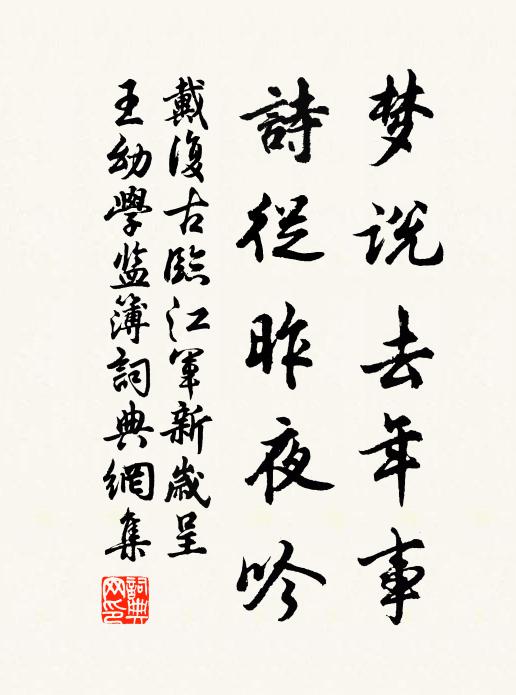 梦说去年事
詩從昨夜吟
戴復古臨江軍新歲呈
王幼學监簿詞典網集
詞典网印